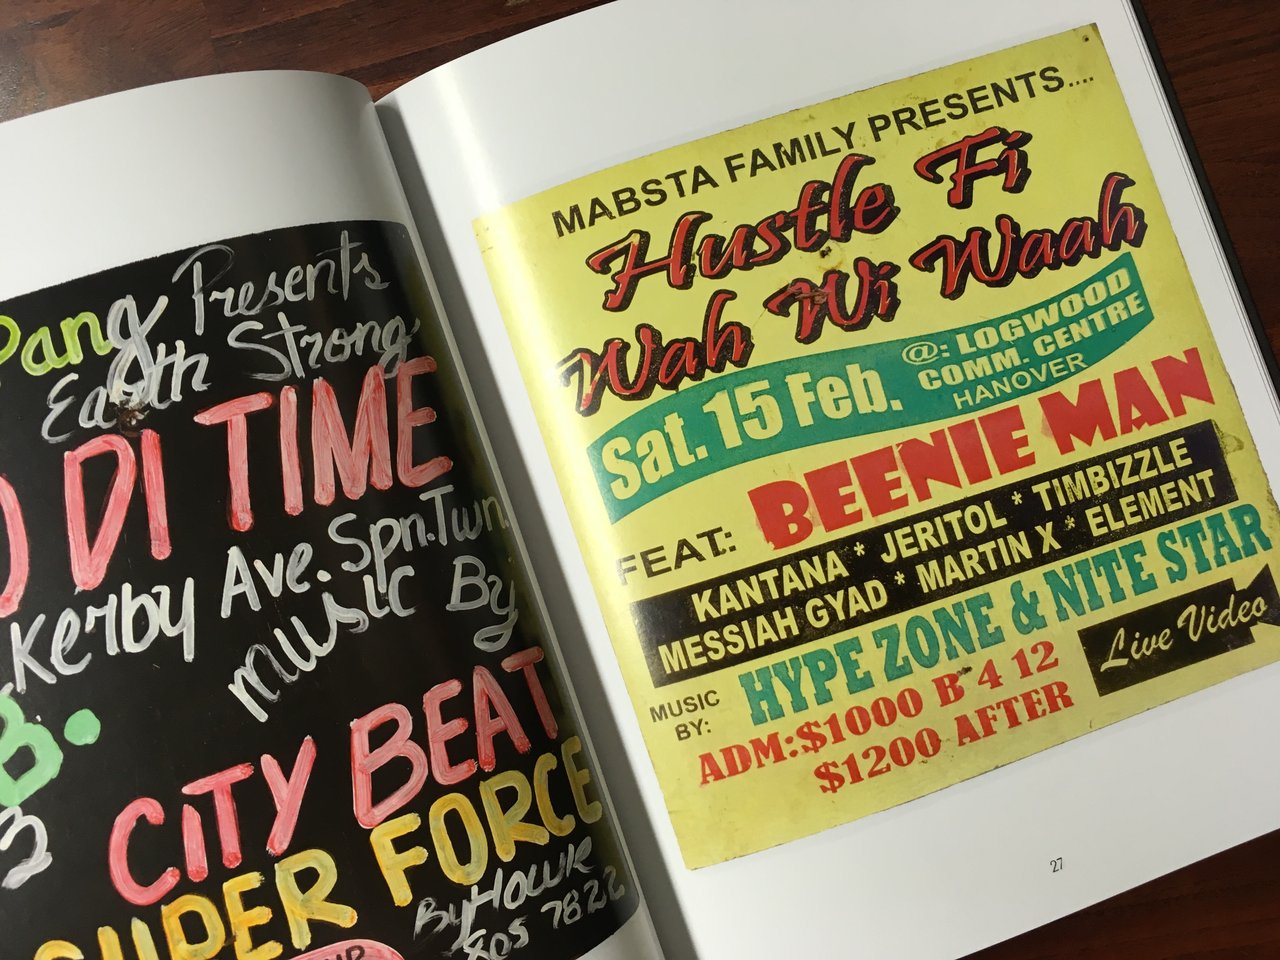 Pang Presents
Earth Strong
DI TIME
Kerby Ave. Spn.Twn
music By
B.
CiTY BEAT
SUPER FORCE
By Howie
805 7822
MABSTA FAMILY PRESENTS....
Hustle Fi
Wah Wi Waah
Sat. 15 Feb.
@: LOGWOOD
COMM. CENTRE
HANOVER
FEAT: BEENIE MAN
KANTANA * JERITOL * TIMBIZZLE
MESSIAH GYAD * MARTIN X * ELEMENT
MUSIC BY: HYPE ZONE & NITE STAR
ADM:$1000 B 4 12
$1200 AFTER
Live Video
27